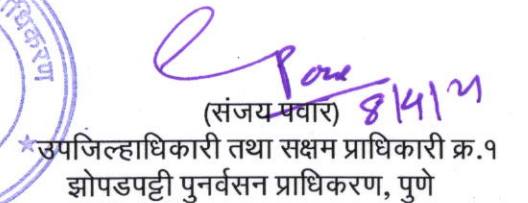 धिकरण
8/4/21
(संजय पवार)
उपजिल्हाधिकारी तथा सक्षम प्राधिकारी क्र.१
झोपडपट्टी पुनर्वसन प्राधिकरण, पुणे